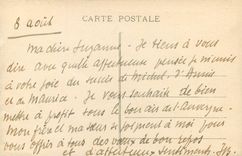 8 août
CARTE POSTALE
Ma chère Suzanne - Je tiens à vous
dire avec quelle affectueuse pensée je m'unis
à votre joie du succès de Michel, d'Annie
et de Maurice. Je vous souhaite de bien
mettre à profit sous le bon air de l'Auvergne.
Mon frère et ma sœur se joignent à moi pour
vous offrir à tous des vœux de bon repos
et d'affectueux sentiments.